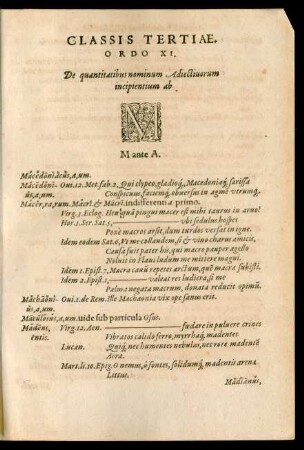 CLASSIS TERTIAE.
ORDO XI.
De quantitatibus nominum Adiectiuorum
incipientium ab
M
M ante A.
Macedŏnĭcus, a, um.
Macĕdŏni- Oui. 12. Met. fab. 2. Qui clypeo, gladioq́, Macedoniaq́; sarissa
us, a, um. Conspicuus, obuersus in agmē utrumq́;
Macĕr, ra, rum. Măcrĭ, & Mācrĭ. indifferenti a primo.
Virg. 3. Eclog. Heu quā pingui macer est mihi taurus in aruo!
Hor. 1. Ser. Sat. 5. ubi sedulus hospes
Penè macros arsit, dum turdos versat in igne.
Idem eodem Sat. 6, Vt me collaudem, si & viuo charus amicis,
Causa fuit pater his, qui macro pauper agello
Noluit in Flaui ludum me mittere magni.
Idem 1. Epist. 7. Macra cauū repetes arctum, quē macra subisti.
Idem 2. Epist. 1. valeat res ludicra, si me
Palma negata macrum, donata reducit opimū.
Măchāŏni- Oui. 2. de Rem. Ille Machaonia vix ope sanus erit.
us, a, um.
Macŭlōsus, a, um. uide sub particula Osus.
Mădens, Virg. 12. Aen. sudare in puluere crines
entis. Vibratos calido ferro, myrrhaq́, madentes
Lucan. Quiq́; nec humentes nebulas, nec rore madentē
Aera.
Mart. li. 10. Epeg. O nemus, ô fontes, solidumq́; madentis arenæ
Littus.
Mădĭanus,